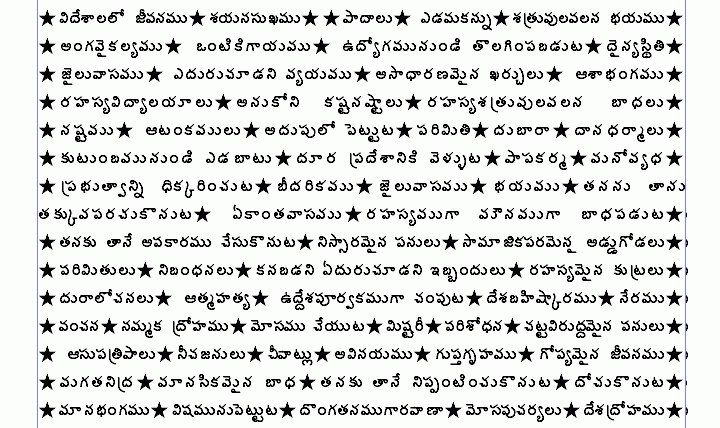 ★విదేశాలలో జీవనము★శయనసుఖము★★పాదాలు★ ఎడమకన్ను★శత్రువులవలన భయము★
★అంగవైకల్యము★ ఒంటికిగాయము★ ఉద్యోగమునుండి తొలగింపబడుట★దైన్యస్థితి★
★జైలువాసము★ ఎదురుచూడని వ్యయము★అసాధారణమైన ఖర్చులు★ ఆశాభంగము★
★రహస్యవిద్యాలయాలు★అనుకోని కష్టనష్టాలు★రహస్యశత్రువులవలన బాధలు★
★నష్టము★ ఆటంకములు★అదుపులో పెట్టుట★పరిమితి★దుబారా★దానధర్మాలు★
★కుటుంబమునుండి ఎడబాటు★దూర ప్రదేశానికి వెళ్ళుట★పాపకర్మ★మనోవ్యధ★
★ప్రభుత్వాన్ని ధిక్కరించుట★బీదరికము★జైలువాసము★భయము★తనను తాను
తక్కువపరచుకొనుట★ ఏకాంతవాసము★రహస్యముగా మౌనముగా బాధపడుట★
★తనకు తానే అపకారము చేసుకొనుట★నిస్సారమైన పనులు★సామాజికపరమైన అడ్డుగోడలు★
★పరిమితులు★నిబంధనలు★కనబడని ఏదురుచూడని ఇబ్బందులు★రహస్యమైన కుట్రలు★
★దురాలోచనలు★ ఆత్మహత్య★ ఉద్దేశపూర్వకముగా చంపుట★దేశబహిష్కారము★నేరము★
★వంచన★నమ్మక ద్రోహము★మోసము చేయుట★మిష్టరీ★పరిశోధన★చట్టవిరుద్దమైన పనులు★
★ ఆసుపత్రిపాలు★నీచజనులు★చీవాట్లు★అవినయము★గుప్తగృహము★ గోప్యమైన జీవనము★
★మగతనిద్ర★మానసికమైన బాధ★తనకు తానే నిప్పంటించుకొనుట★దోచుకొనుట★
★మానభంగము★విషమునుపెట్టుట★దొంగతనముగారవాణా★మోసపుచర్యలు★దేశద్రోహము★